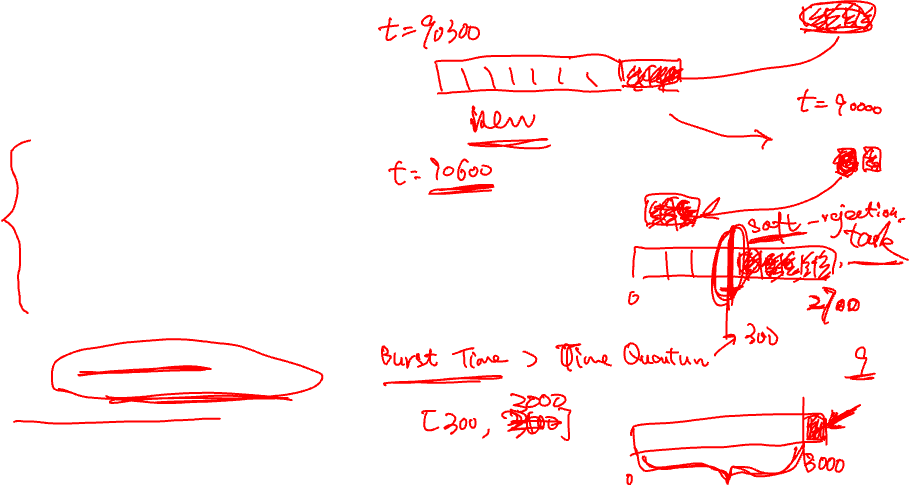 t=90300
t=90000
new
t=90600
soft-rejection
task
0
2700
300
Burst Time > Time Quantum
9
2000
[300, ]
0
3000